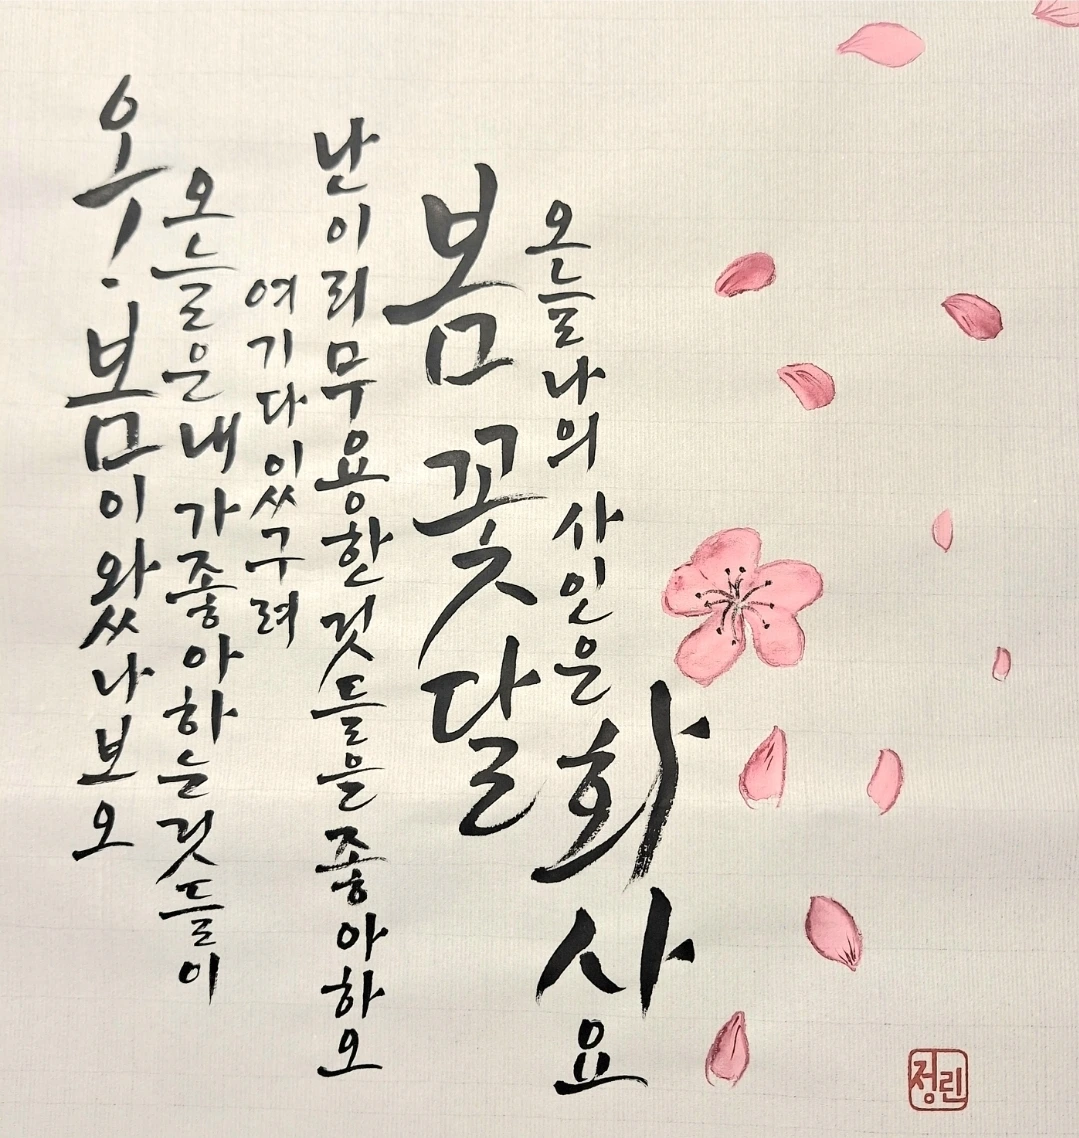 오! 봄이 왔나보오
오늘은 내가 좋아하는 것들이
여기 다 있구려
난 이리 무용한 것들을 좋아하오
봄 꽃 달
오늘 나의 사인은 화사요
정린